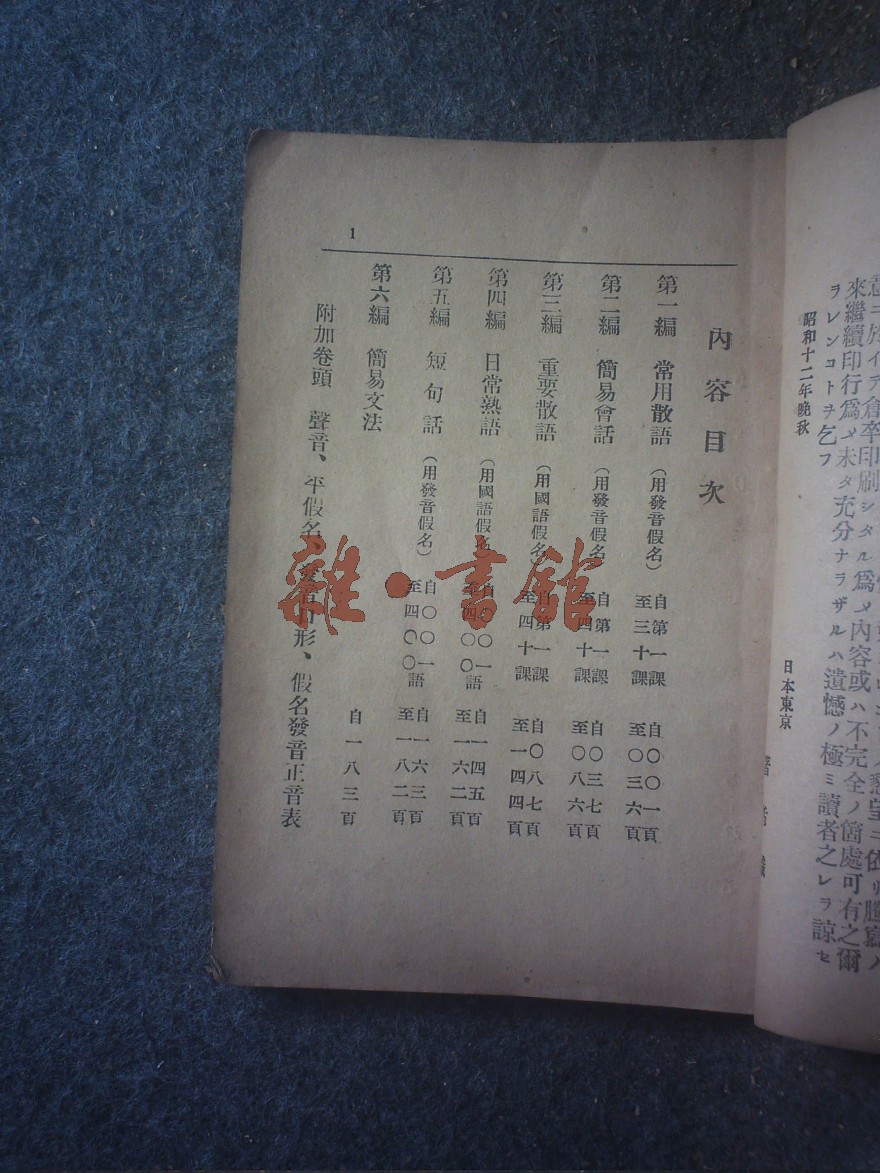 來繼續印行爲メ未タ充分ナラザルハ遺憾ノ極ミ讀者之レヲ諒セ
ラレンコトヲ乞フ
昭和十二年晩秋
日本東京
內容目次
第一編 常用散語 (用發音假名) 自第一課至三十課 自〇〇一頁至〇三六頁
第二編 簡易會話 (用發音假名) 自第一課至四十課 自〇三七頁至〇八六頁
第三編 重要散語 (用國語假名) 自第一課至四十課 自〇八七頁至一四四頁
第四編 日常熟語 (用國語假名) 自〇〇一語至四〇〇 自一四五頁至一六二頁
第五編 短句話 (用發音假名) 自〇〇一語至四〇〇 自一六三頁至一八二頁
第六編 簡易文法 自一八三頁
附加卷頭 聲音、平假名、形、假名發音正音表
1
雜·書館